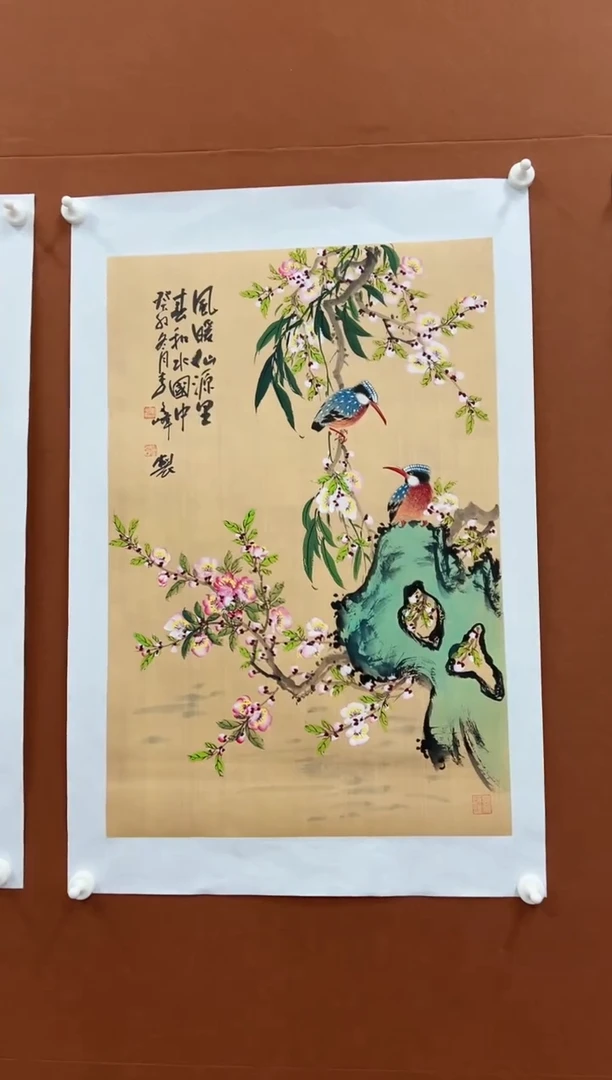 風暖仙源里
春和水國中
癸卯冬月 峰
製